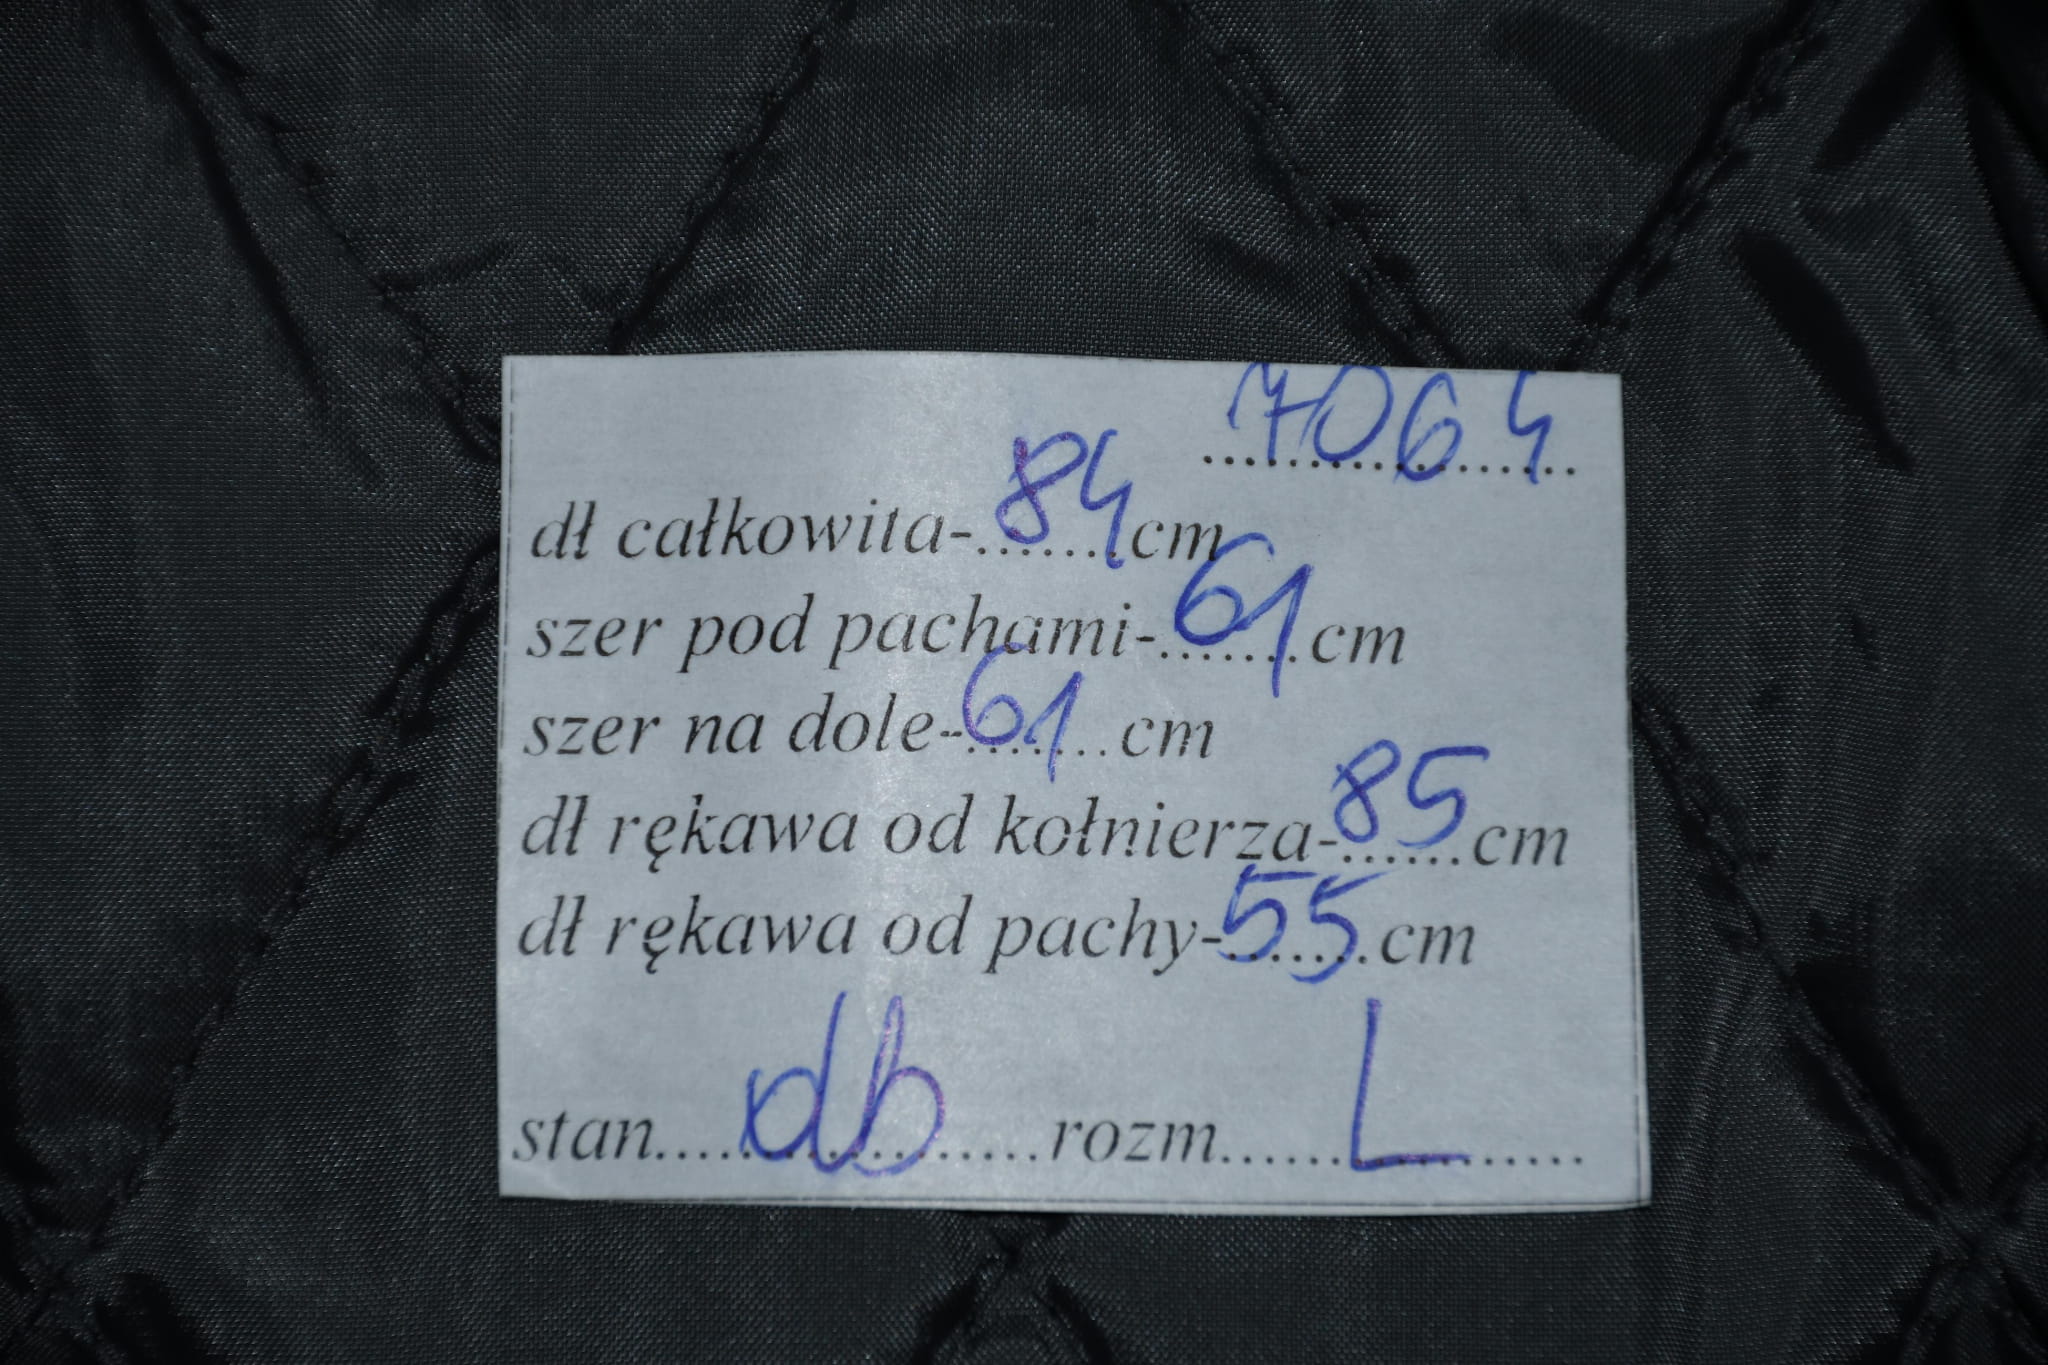 7064
dł całkowita-.......84cm
szer pod pachami-.......61cm
szer na dole-.......61cm
dł rękawa od kołnierza-......85cm
dł rękawa od pachy-.......55cm
stan....db....rozm....L....